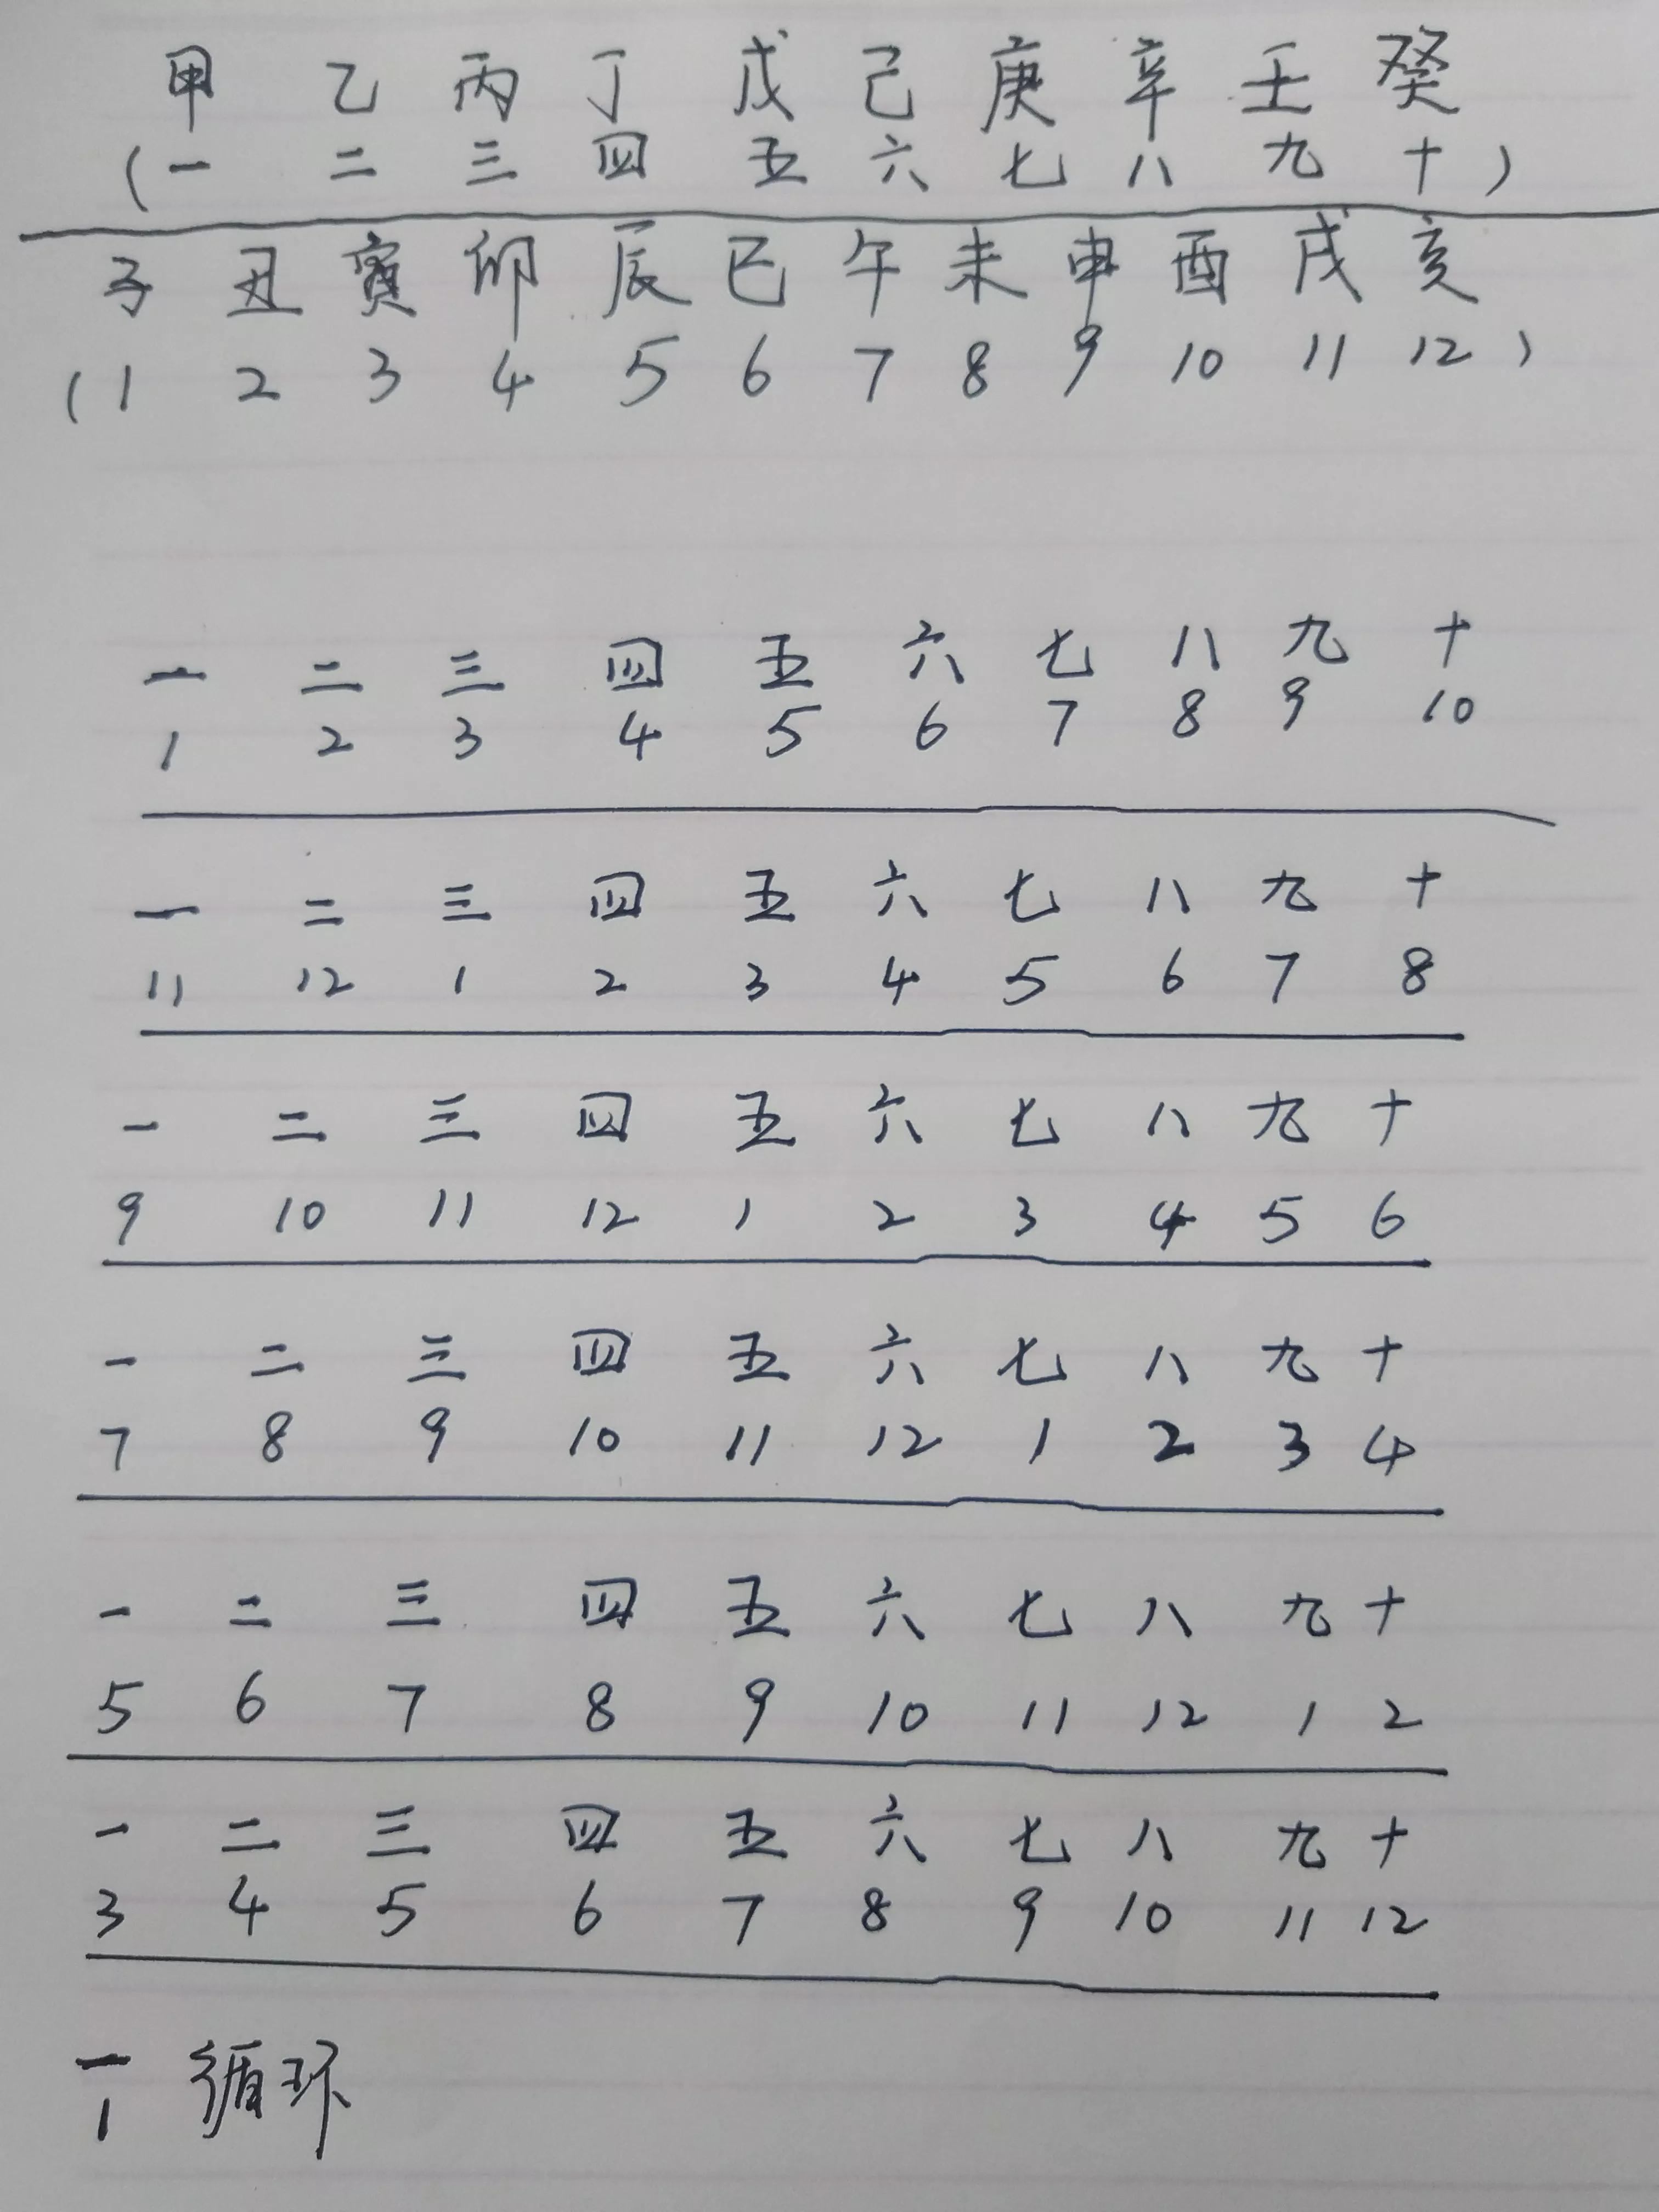 甲 乙 丙 丁 戊 己 庚 辛 壬 癸
(一 二 三 四 五 六 七 八 九 十)
子 丑 寅 卯 辰 巳 午 未 申 酉 戌 亥
(1 2 3 4 5 6 7 8 9 10 11 12)
一 二 三 四 五 六 七 八 九 十
1 2 3 4 5 6 7 8 9 10
一 二 三 四 五 六 七 八 九 十
11 12 1 2 3 4 5 6 7 8
一 二 三 四 五 六 七 八 九 十
9 10 11 12 1 2 3 4 5 6
一 二 三 四 五 六 七 八 九 十
7 8 9 10 11 12 1 2 3 4
一 二 三 四 五 六 七 八 九 十
5 6 7 8 9 10 11 12 1 2
一 二 三 四 五 六 七 八 九 十
3 4 5 6 7 8 9 10 11 12
一 循环
1